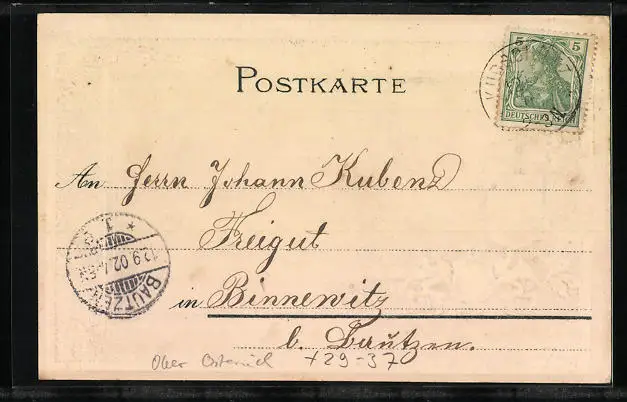 5 5
DEUTSCHES REICH
POSTKARTE
An Herrn Johann Kubenz
Freigut
in Binnewitz
b. Bautzen.
BAUTZEN
1
12.9.02.
Ober Österreich +29-37